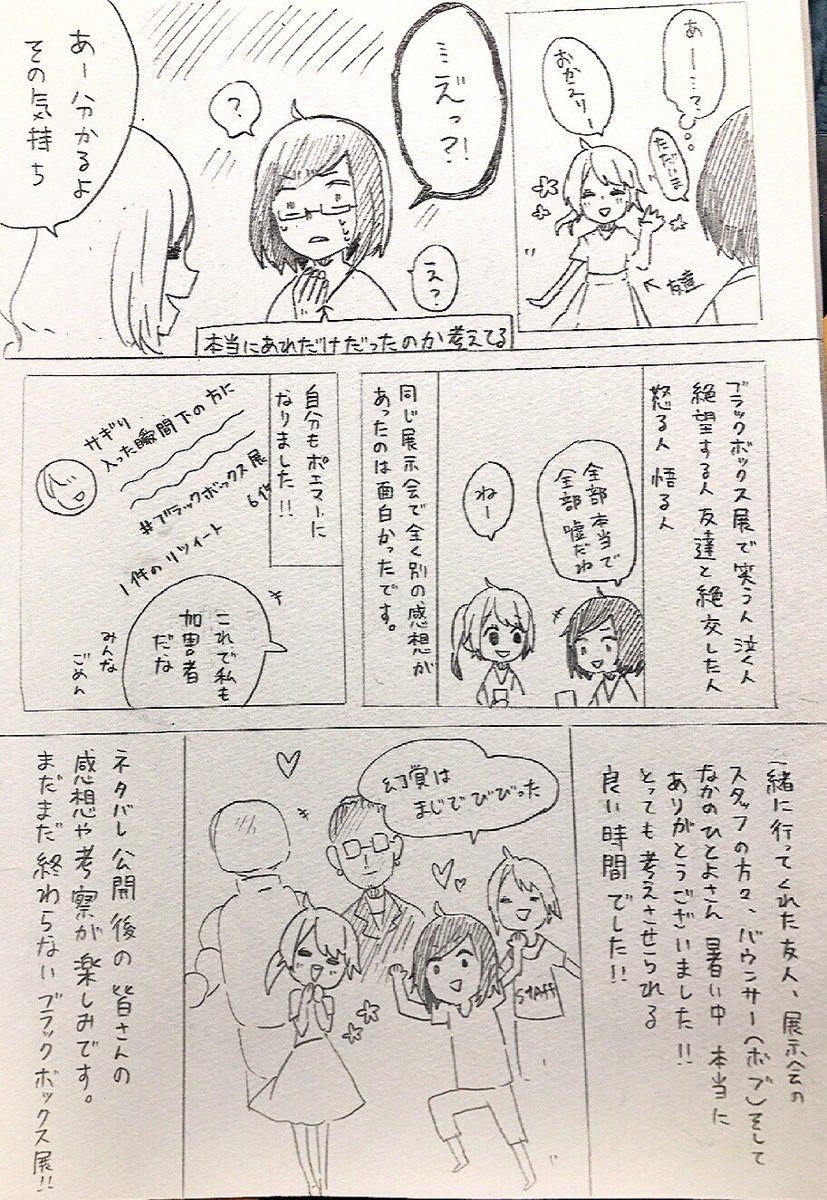 あー…？
ただいま
おかえりー
友達
…えっ？！
？
え？
本当にあれだけだったのか考えてる
あー分かるよ
その気持ち
ブラックボックス展で笑う人 泣く人
絶望する人 友達と絶交した人
怒る人 悟る人
全部本当で
全部嘘だね
ねー
同じ展示会で全く別の感想が
あったのは面白かったです。
自分もポエマーに
なりました!!
サギリ
入った瞬間下の方に
#ブラックボックス展
6件
1件のリツイート
これで私も
加害者
だな
みんな
ごめん
一緒に行ってくれた友人、展示会の
スタッフの方々、バウンサー(ボブ)そして
なかのひとよさん 暑い中 本当に
ありがとうございました!!
とっても考えさせられる
良い時間でした!!
幻覚は
まじでびびった
STAFF
ネタバレ公開後の皆さんの
感想や考察が楽しみです。
まだまだ終わらないブラックボックス展!!